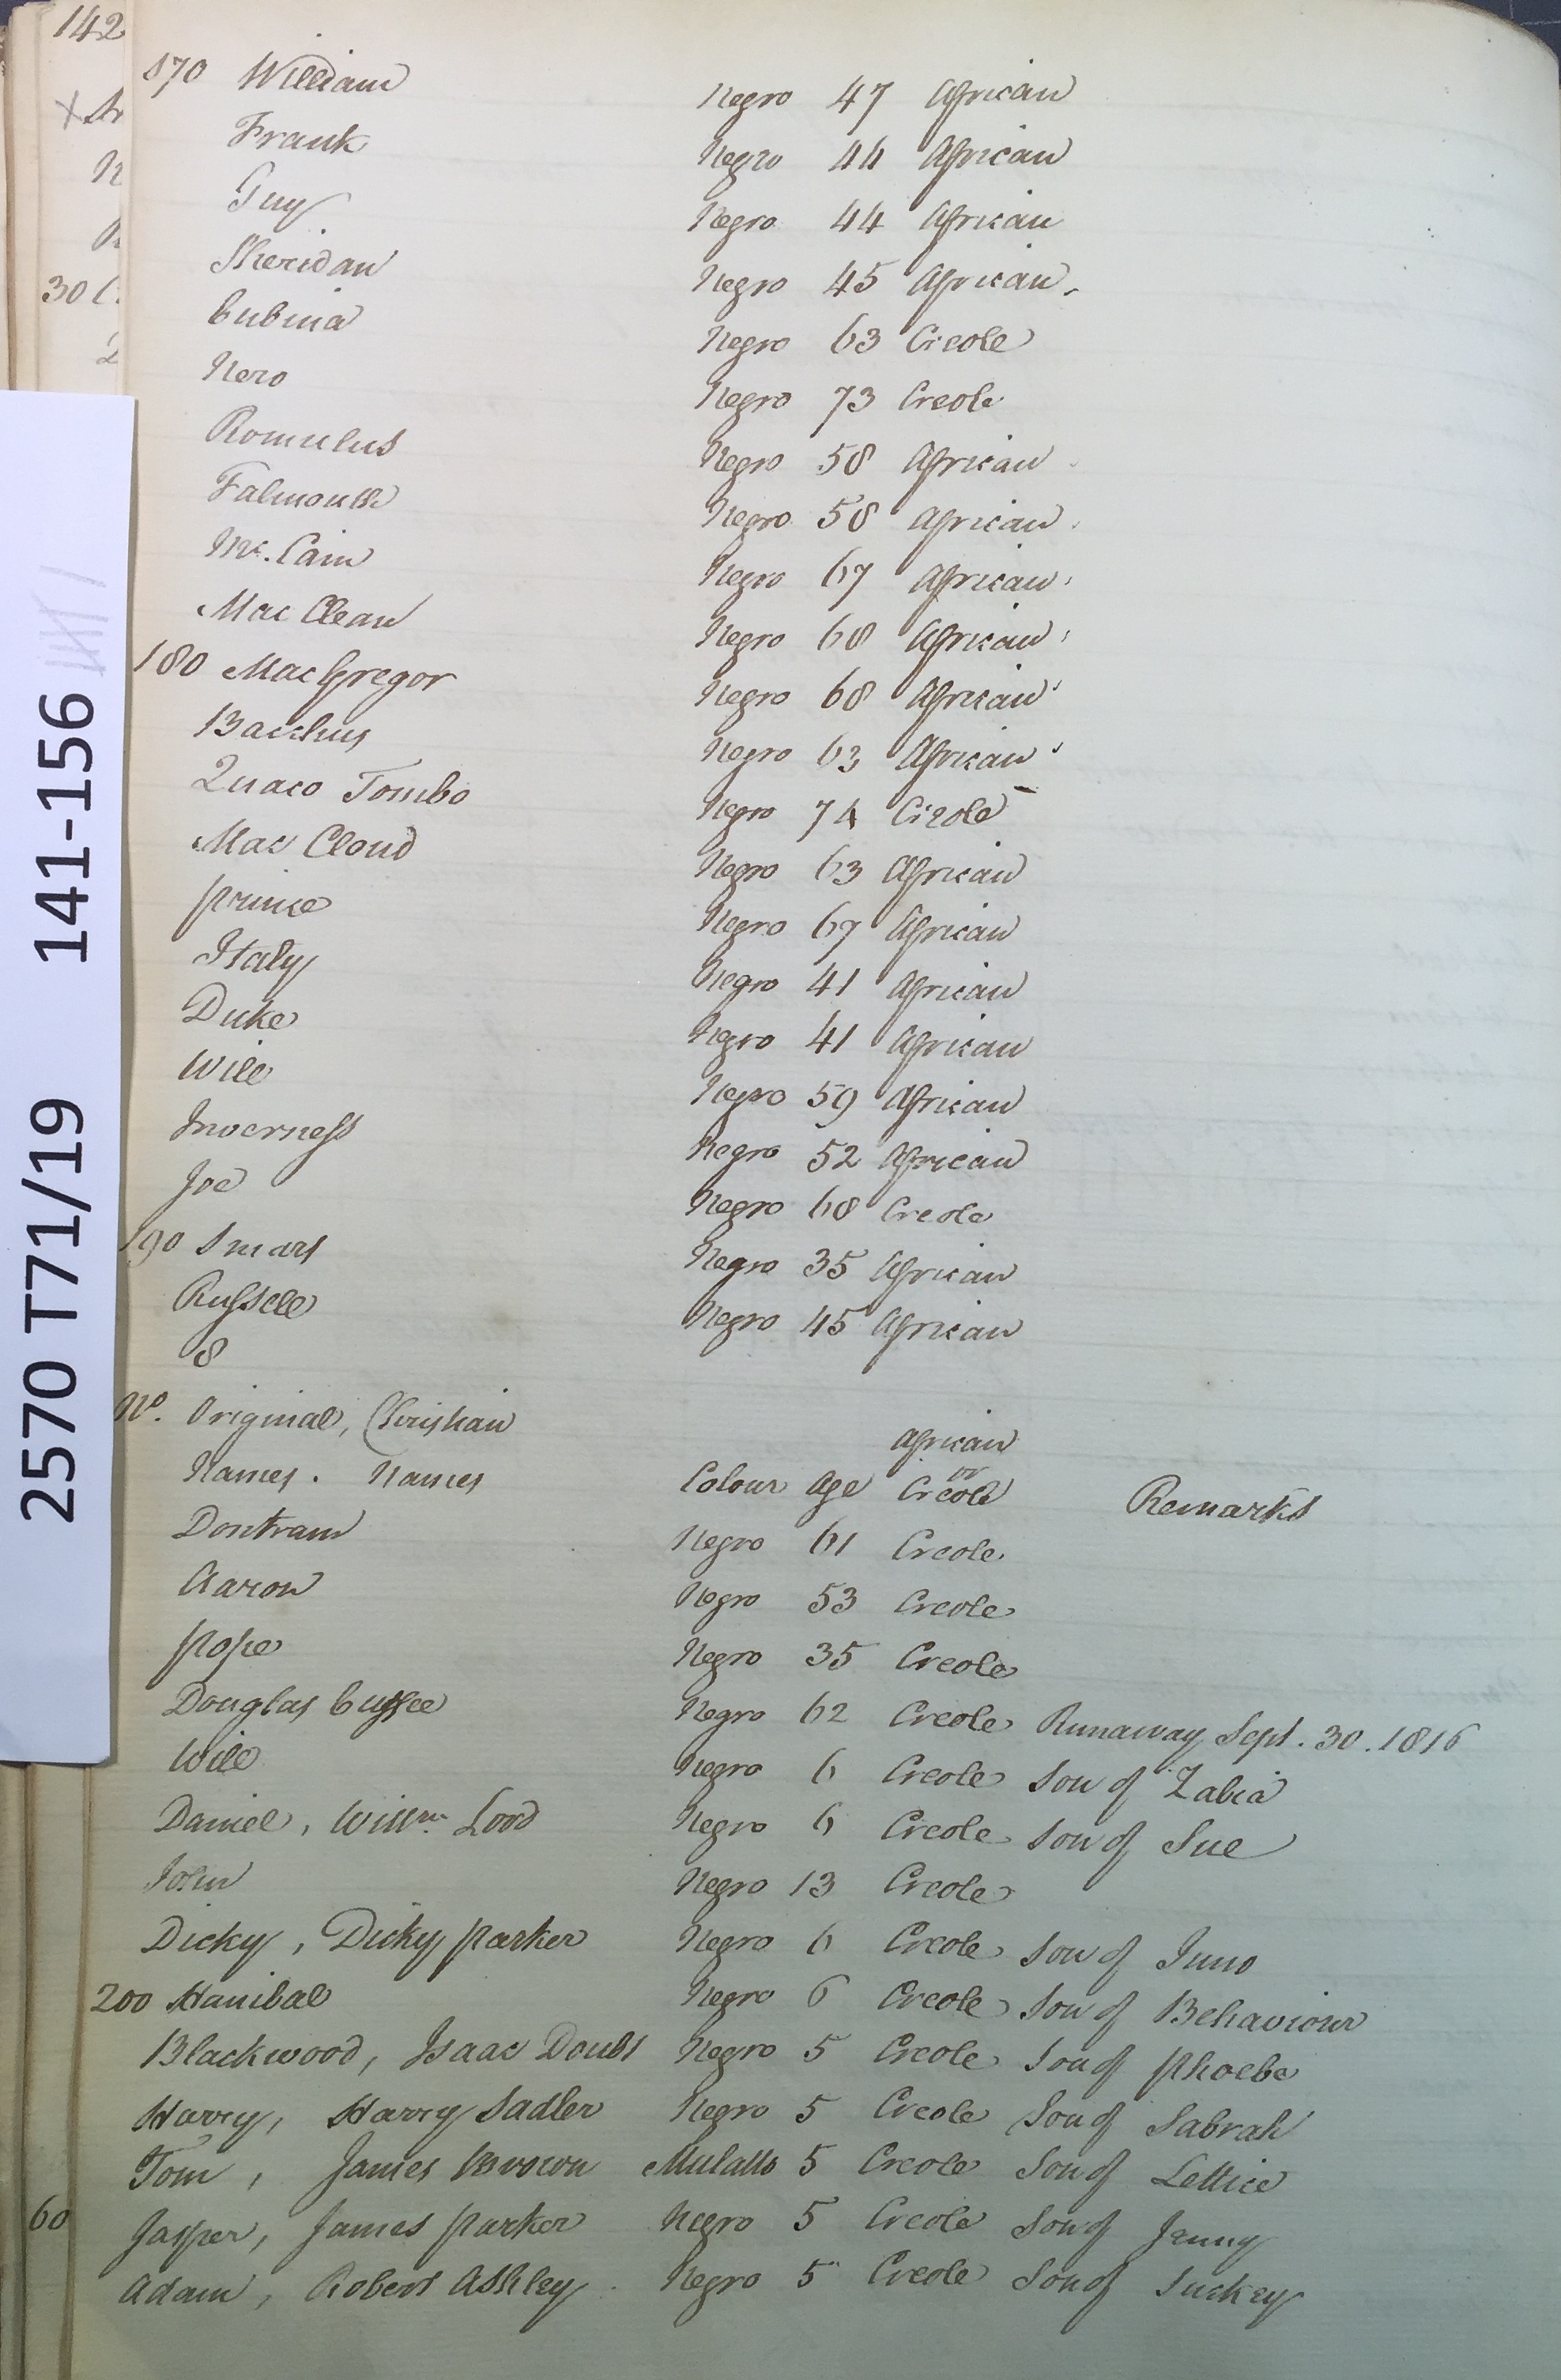 142
170 William Negro 47 African
Frank Negro 44 African
Guy Negro 44 African
Sheridan Negro 45 African
Cubina Negro 63 Creole
Nero Negro 73 Creole
Romulus Negro 58 African
Falmouth Negro 58 African
Mc. Cain Negro 67 African
Mac Clean Negro 68 African
180 MacGregor Negro 68 African
Bacchus Negro 63 African
Quaco Tombo Negro 74 Creole
Mac Cloud Negro 63 African
Prince Negro 67 African
Italy Negro 41 African
Duke Negro 41 African
Will Negro 59 African
Inverness Negro 52 African
Joe Negro 68 Creole
190 Smart Negro 35 African
Russell Negro 45 African
8
No. Original, Christian African
or
Names. Names Colour Age Creole Remarks
Dontram Negro 61 Creole
Aaron Negro 53 Creole
Pope Negro 35 Creole
Douglas Cuffee Negro 62 Creole Runaway Sept. 30. 1816
Will Negro 6 Creole Son of Zabia
Daniel, Willm. Lord Negro 6 Creole Son of Sue
John Negro 13 Creole
Dicky, Dicky Parker Negro 6 Creole Son of Juno
200 Hanibal Negro 6 Creole Son of Behaviour
Blackwood, Isaac Doubt Negro 5 Creole Son of Phoebe
Harry, Harry Sadler Negro 5 Creole Son of Sabrah
Tom, James Brown Mulatto 5 Creole Son of Lettice
Jasper, James Parker Negro 5 Creole Son of Jenny
Adam, Robert Ashley Negro 5 Creole Son of Suckey
30
60
2570 T71/19 141-156